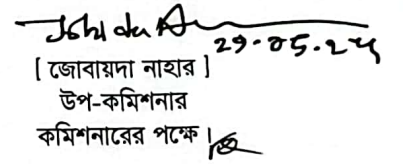 ২৭.০৫.২৫
[ জোবায়দা নাহার ]
উপ-কমিশনার
কমিশনারের পক্ষে।